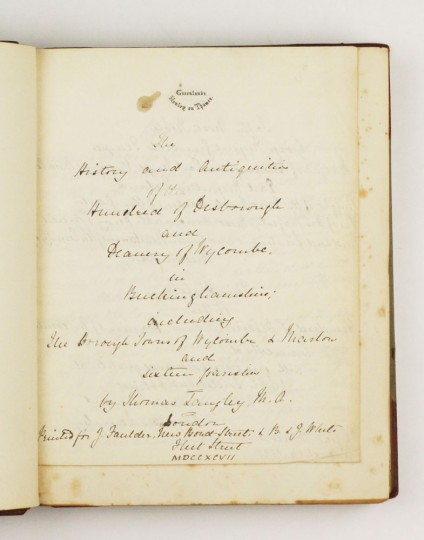 Greenlands
Henley on Thames.
The
History and Antiquities
of the
Hundred of Desborough
and
Deanery of Wycombe.
in
Buckinghamshire;
including
The Borough Towns of Wycombe & Marlow
and
Sixteen parishes
by Thomas Langley, M.A.
London
Printed for J. Faulder. New Bond Street & B & J. White
Fleet Street
MDCCXCVII